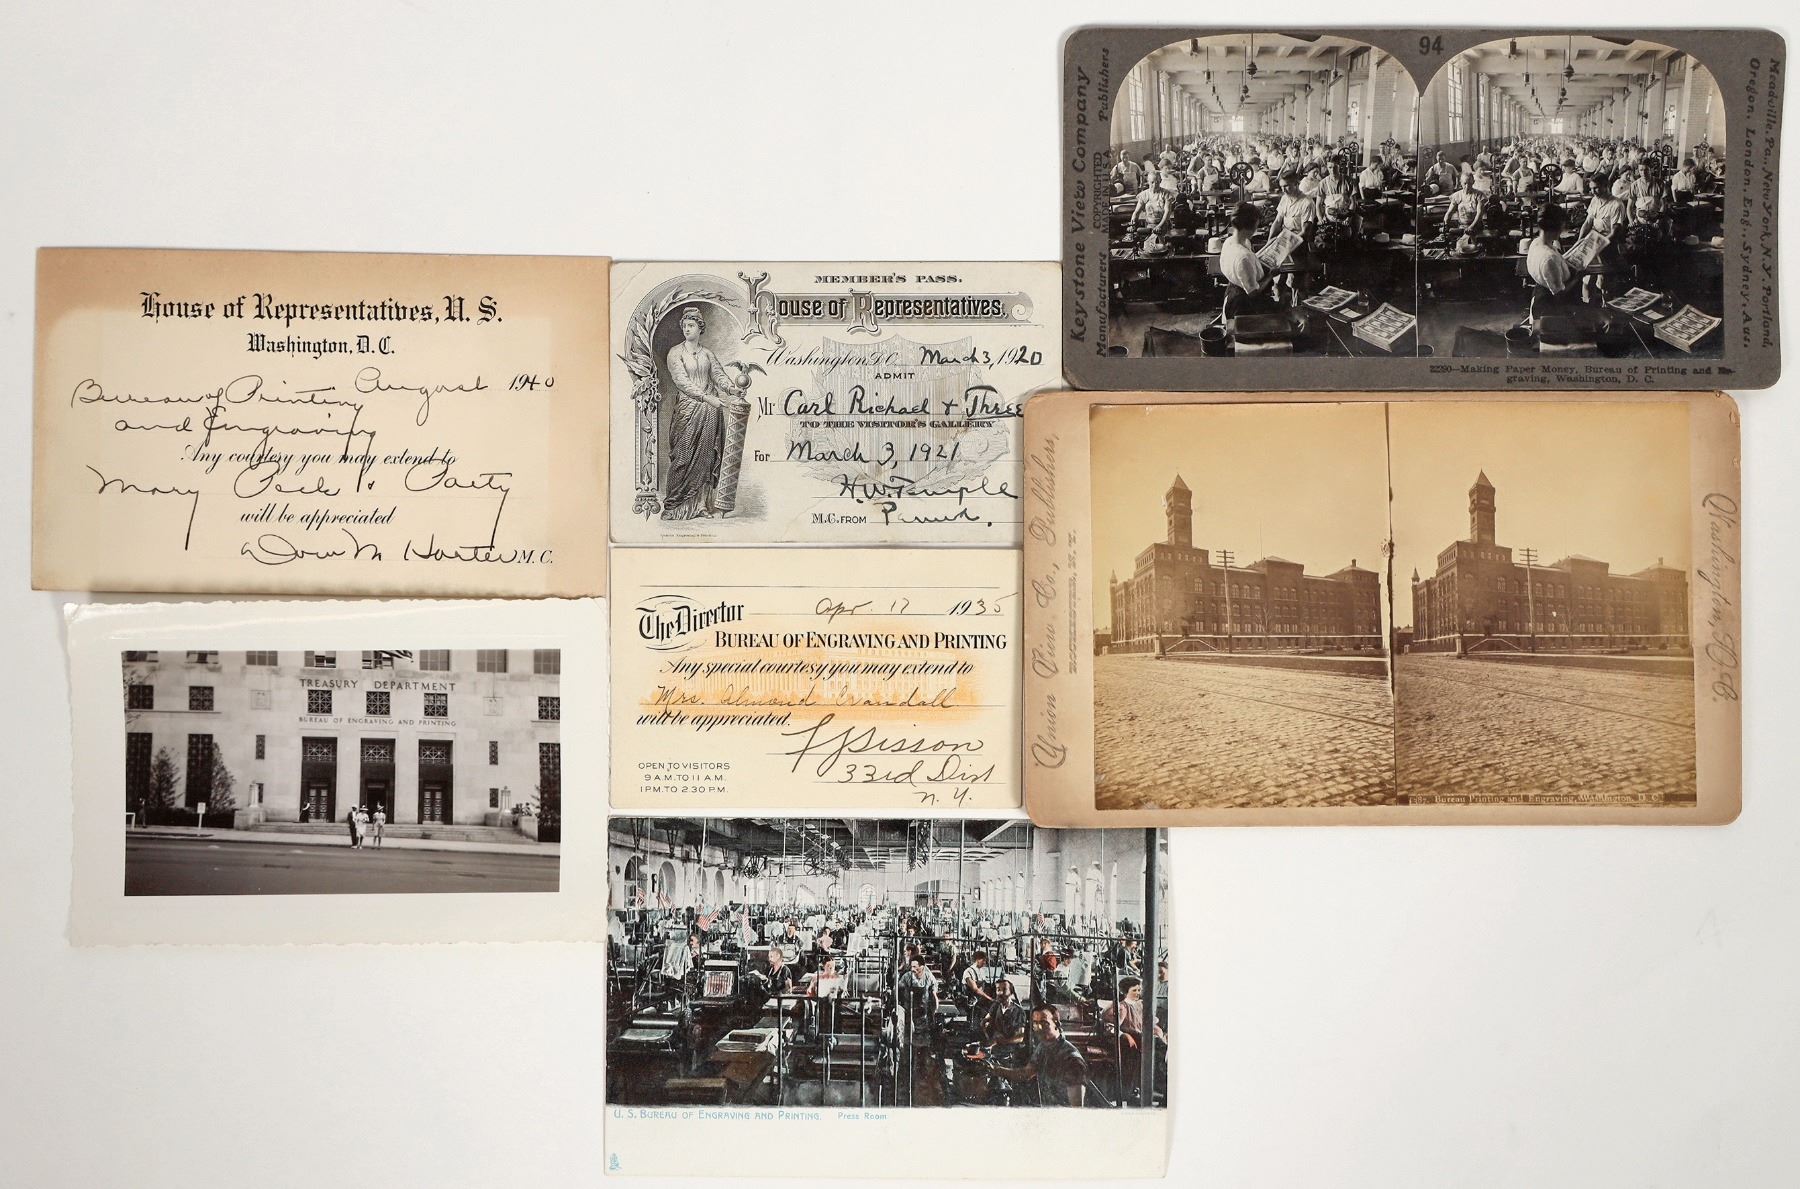 House of Representatives, U. S.
Washington, D. C.
August 1940
Bureau of Printing
and Engraving
Any courtesy you may extend to
Mary Peck & Party
will be appreciated
M. C.
TREASURY DEPARTMENT
BUREAU OF ENGRAVING AND PRINTING
MEMBER'S PASS.
House of Representatives.
Washington D.C. March 3, 1920
ADMIT
Mr Carl Richael & Three
TO THE VISITOR'S GALLERY
For March 3, 1921
H. W. Temple
M.C. FROM Penna.
The Director
Apr. 17 1935
BUREAU OF ENGRAVING AND PRINTING
Any special courtesy you may extend to
Mrs. Almond Crandall
will be appreciated.
F J Sisson
33rd Dist
N. Y.
OPEN TO VISITORS
9 A.M. TO 11 A.M.
1 P.M. TO 2.30 P.M.
U. S. BUREAU OF ENGRAVING AND PRINTING. Press Room
94
Keystone View Company
Manufacturers Publishers
COPYRIGHTED
MADE IN U.S.A.
Meadville, Pa., New York, N.Y. Portland,
Oregon, London, Eng., Sydney, Aus.
22290—Making Paper Money, Bureau of Printing and En-
graving, Washington, D. C.
Union View Co., Publishers,
ROCHESTER, N. Y.
Washington, D. C.
Bureau Printing and Engraving, Washington, D. C.